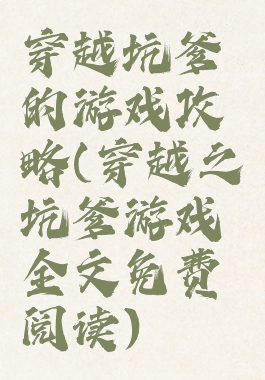 穿越坑爹
的游戏攻
略(穿越之
坑爹游戏
全文免费
阅读)